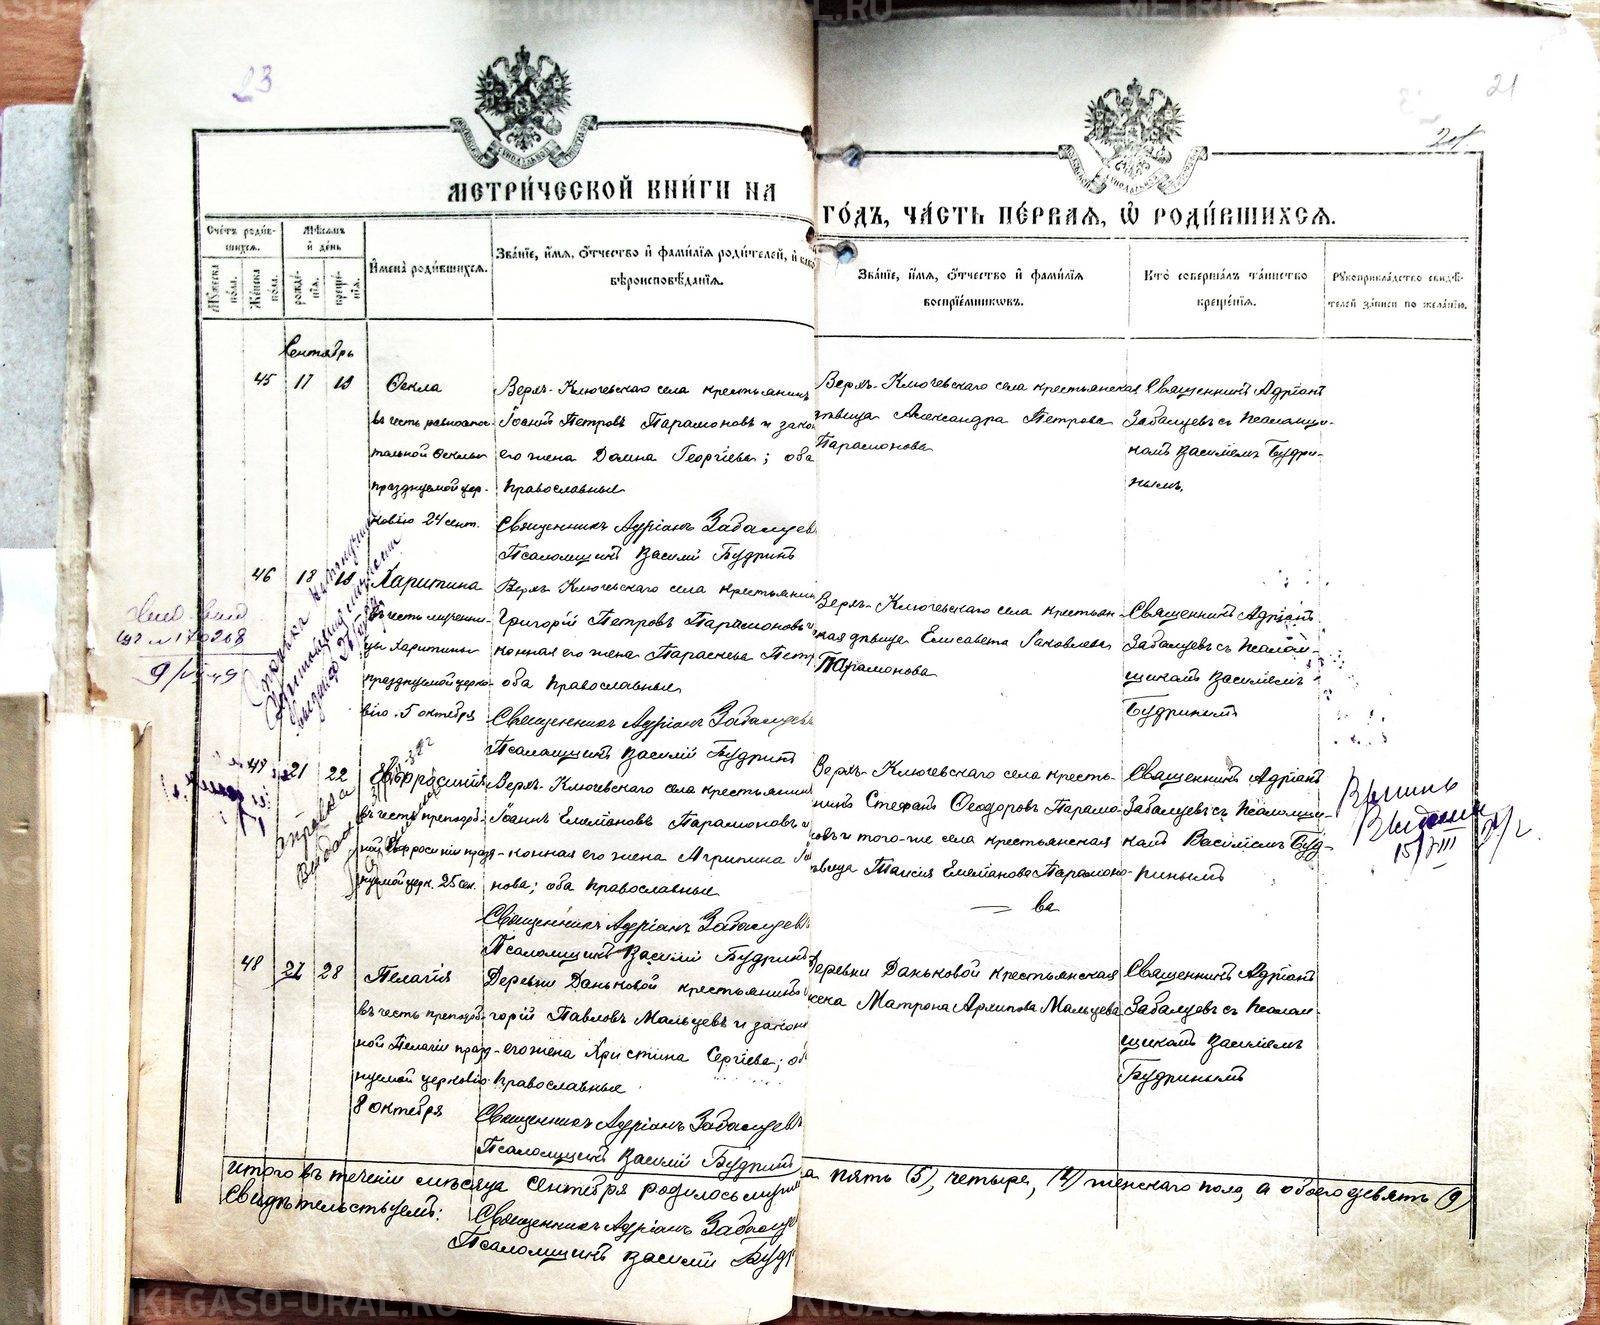 METRIKI.GASO-URAL.RU
METRIKI.GASO-URAL.RU
23
21
МЕТРИЧЕСКОЙ КНИГИ НА
ГОДЪ, ЧАСТЬ ПЕРВАЯ, Ѡ РОДИВШИХСЯ.
Счетъ родив-
шихся.
Мужеска пола.
Женска пола.
Мѣсяцъ
и день
рожде-
нія.
креще-
нія.
Имена родившихся.
Званіе, имя, отчество и фамилія родителей, и како
вѣроисповѣданія.
Званіе, имя, отчество и фамилія
воспріемниковъ.
Кто совершалъ таинство
крещенія.
Рукоприкладство свидѣ-
телей записи по желанію.
Сентябрь
45 17 18
Ѳекла
въ честь равноапос-
тольной Ѳеклы
празднуемой цер-
ковію 24 сент.
Верхъ-Ключевскаго села крестьянинъ
Іоаннъ Петровъ Парамоновъ и зако
его жена Домна Георгіева; оба
православные
Священникъ Адріанъ Забалуев
Псаломщикъ Василій Будринъ
Верхъ-Ключевскаго села крестьянская
дѣвица Александра Петрова
Парамонова
Священникъ Адріанъ
Забалуевъ съ псаломщи-
комъ Василіемъ Будри-
нымъ.
46 18 19
Харитина
въ честь мучени-
цы Харитины
празднуемой церко-
вію 5 октября
Верхъ-Ключевскаго села крестьянин
Григорій Петровъ Парамоновъ и
конная его жена Параскева Петр
оба православные
Священникъ Адріанъ Забалуев
Псаломщикъ Василій Будринъ
Верхъ-Ключевскаго села крестьян-
ская дѣвица Елисавета Іаковлева
Парамонова
Священникъ Адріанъ
Забалуевъ съ псалом-
щикомъ Василіемъ
Будринымъ
21 22
Евфросинія
въ честь преподоб-
ной Евфросиніи празд-
нуемой церк. 25 сен.
Верхъ-Ключевскаго села крестьянин
Іоаннъ Емеліановъ Парамоновъ и
конная его жена Агрипина
нова; оба православные
Священникъ Адріанъ Забалуев
Псаломщикъ Василій Будринъ
Верхъ-Ключевскаго села кресть-
нинъ Стефанъ Ѳеодоровъ Парамо-
новъ и того-же села крестьянская
дѣвица Таисія Емеліанова Парамоно-
ва
Священникъ Адріанъ
Забалуевъ съ псаломщи-
комъ Василіемъ Буд-
ринымъ
справка
Выдана
15/VIII
48 27 28
Пелагія
въ честь преподоб-
ной Пелагіи празд-
нуемой церковію
8 октября
Деревни Даньковой крестьянинъ
горій Павловъ Мальцевъ и закон
его жена Христина Сергіева; об
православные
Священникъ Адріанъ Забалуев
Псаломщикъ Василій Будринъ
Деревни Даньковой крестьянская
жена Матрона Архипова Мальцева
Священникъ Адріанъ
Забалуевъ съ псалом-
щикомъ Василіемъ
Будринымъ
итого въ теченіи мѣсяца сентября родилось муж
а пять (5), четыре, (4) женскаго пола, а обоего девять (9)
Свидѣтельствуемъ:
Священникъ Адріанъ Забалуе
Псаломщикъ Василій Будр
METRIKI.GASO-URAL.RU
METRIKI.GASO-URAL.RU